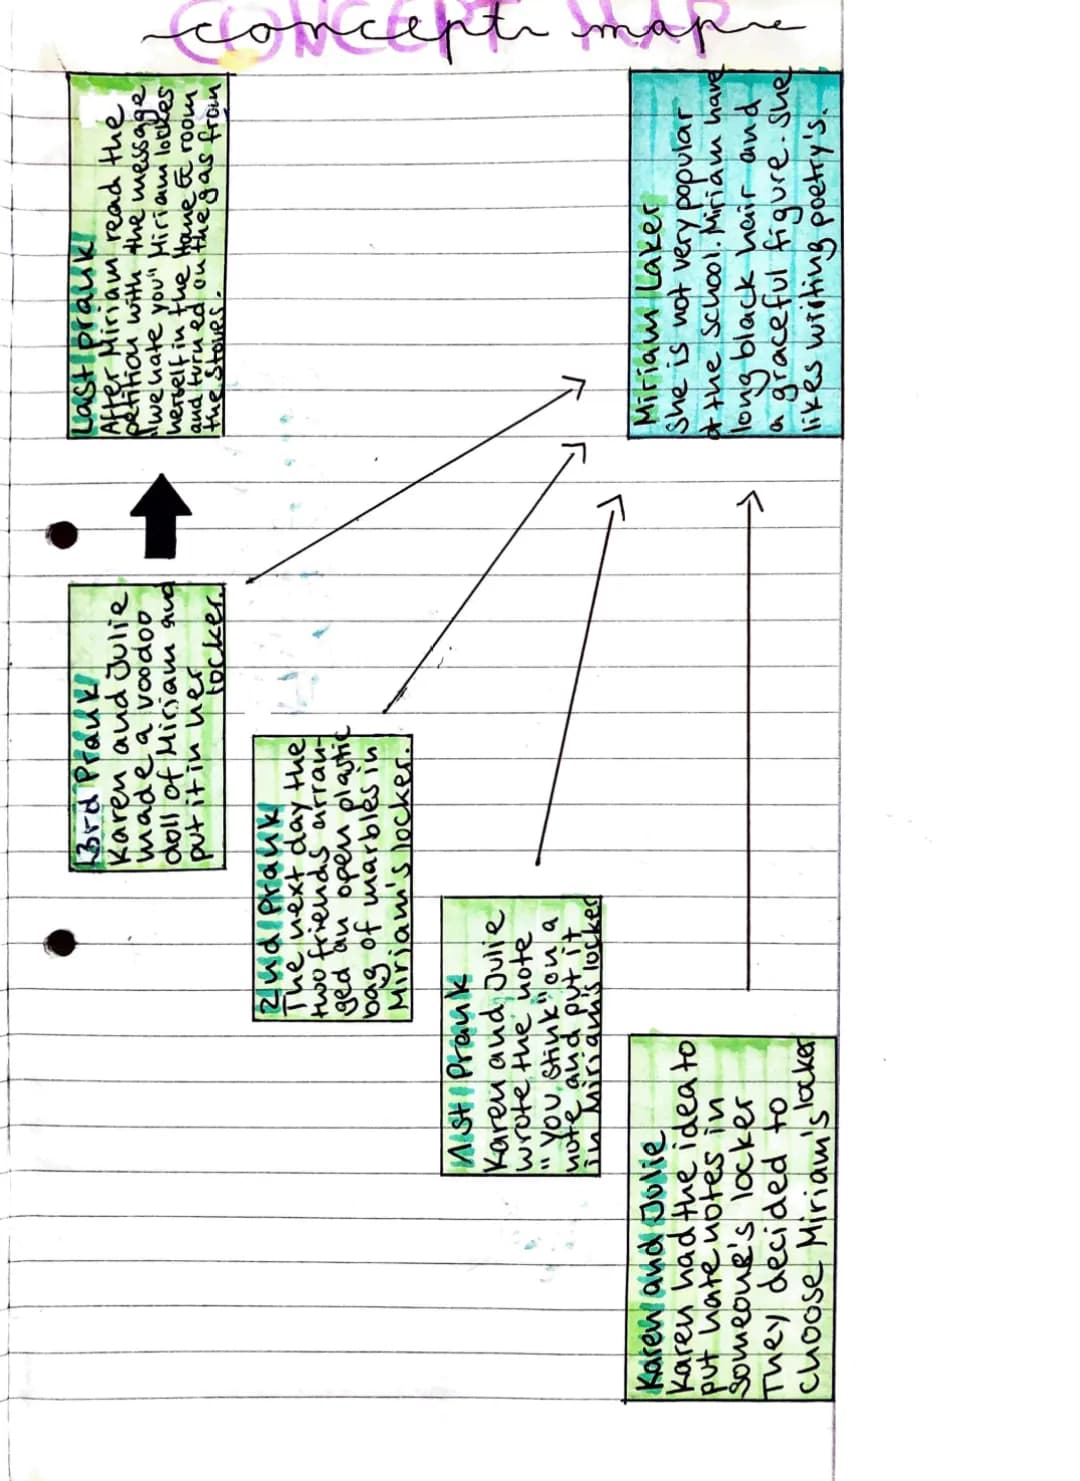 CONCEPT MAP
concept map
Last prank
After Miriam read the
petition with the message
"we hate you" Miriam lockes
herself in the Home Ec room
and turned on the gas from
the stoves.
Miriam Laker
She is not very popular
at the school. Miriam have
long black hair and
a graceful figure. She
likes writing poetry's.
3rd Prank
Karen and Julie
made a voodoo
doll of Miriam and
put it in her
locker.
2nd Prank
The next day the
two friends arran-
ged an open plastic
bag of marbles in
Miriam's locker.
1st Prank
Karen and Julie
wrote the note
"you stink" on a
note and put it
in Miriam's locker
Karen and Julie
Karen had the idea to
put hate notes in
someone's locker
They decided to
choose Miriam's locker